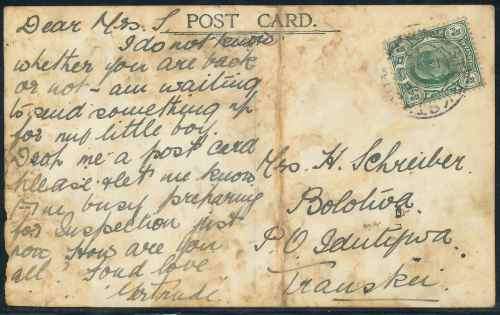 POST CARD.
Dear Mrs. S
I do not know
whether you are back
or not - am waiting
to send something up
for my little boy.
Drop me a post card
please & let me know
I'm busy preparing
for inspection just
now. How are you
all? Fond love
Gertrude.
Mrs. H. Schreiber.
Bolotwa.
P.O. Idutywa.
Transkei.